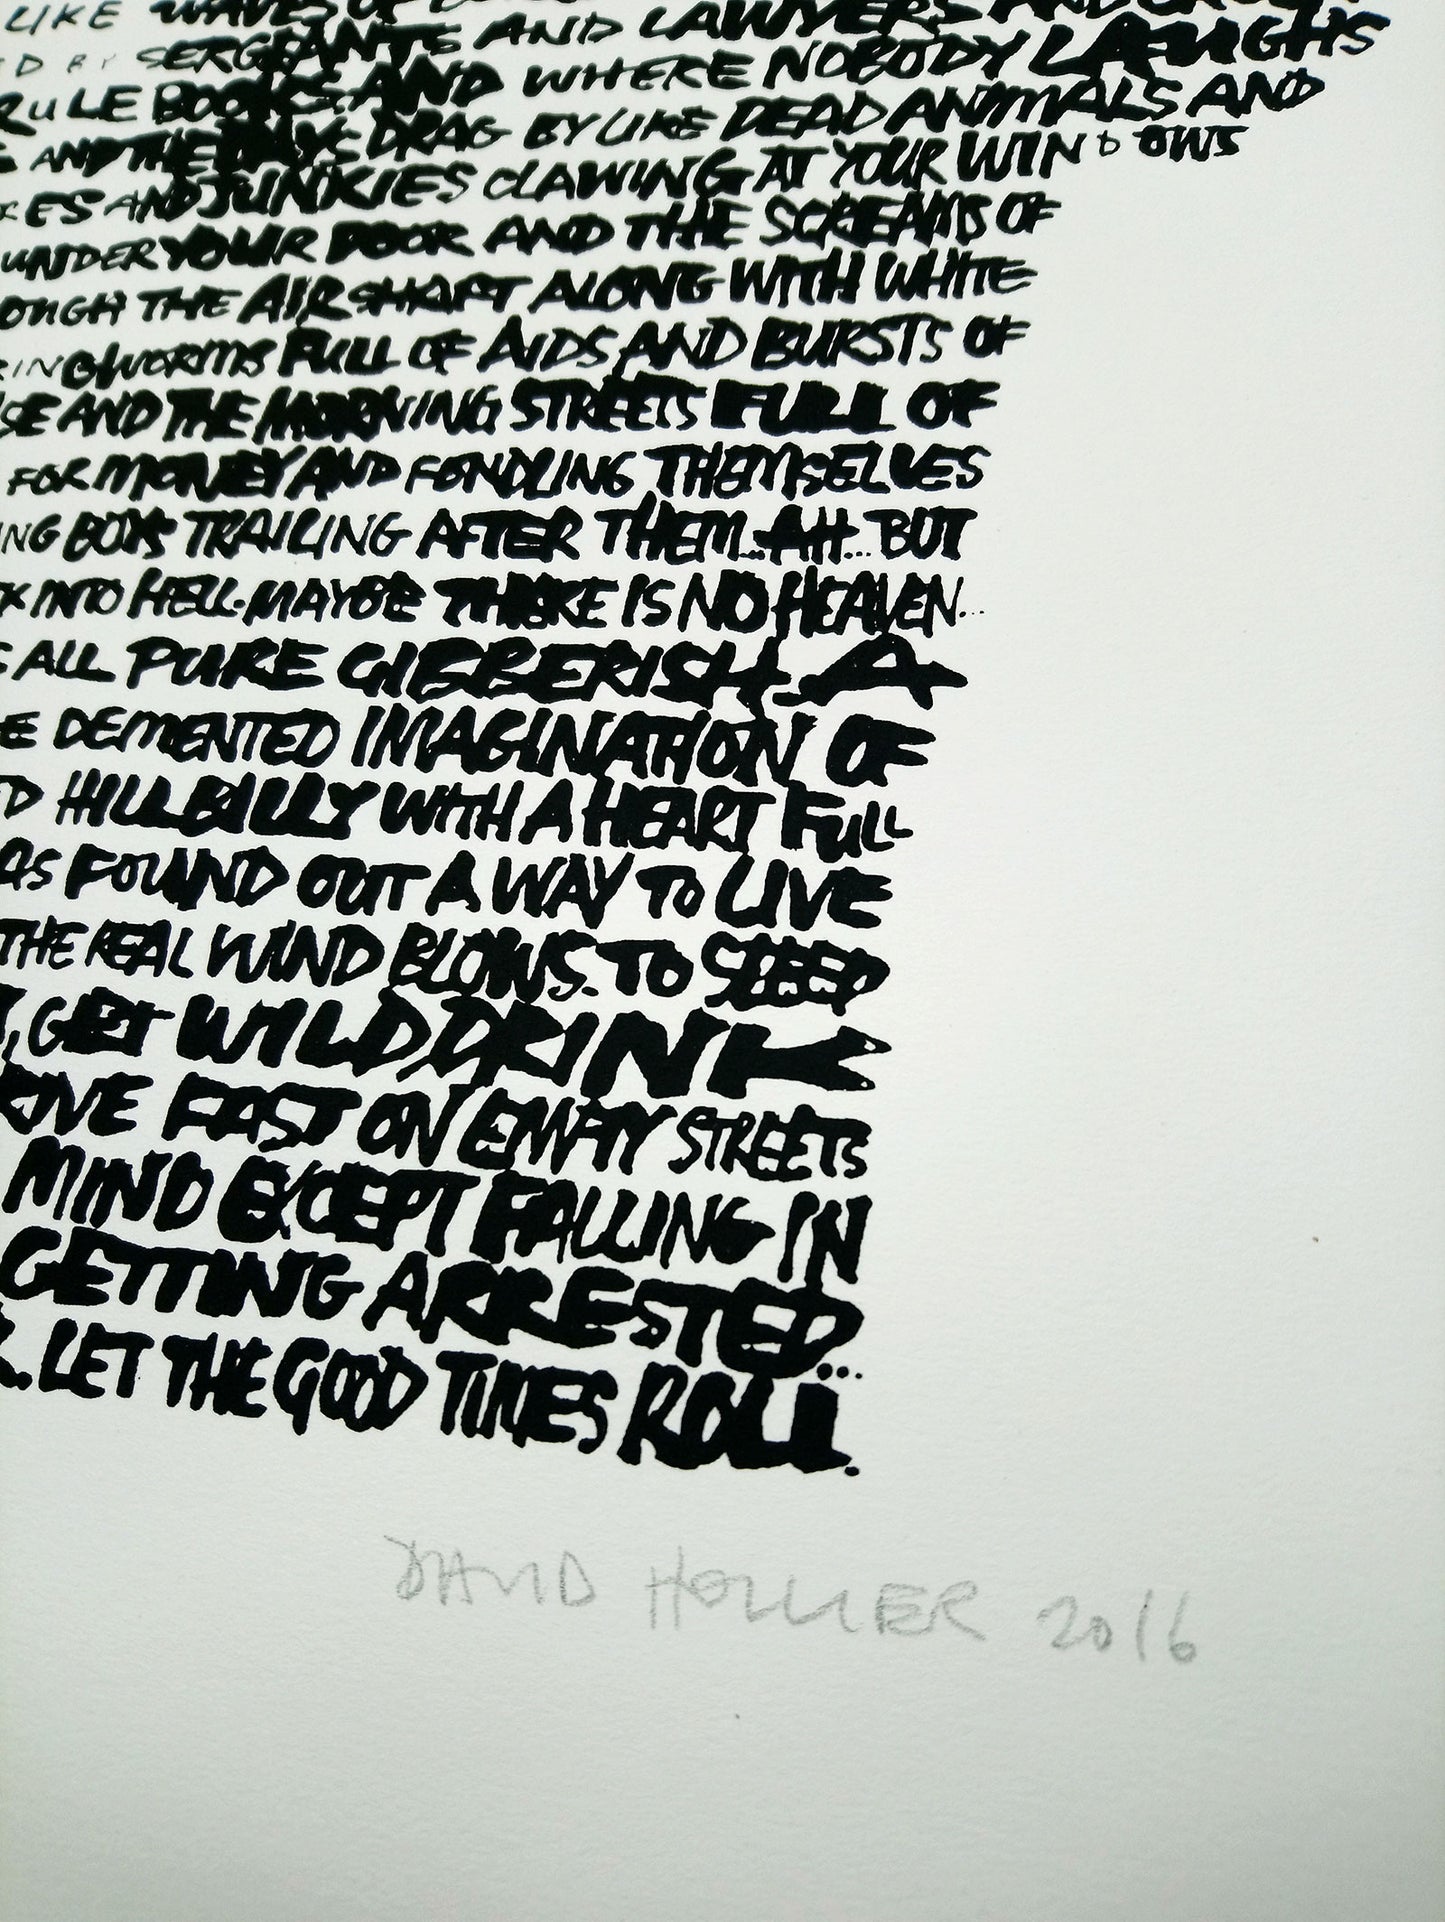 LIKE WAVES OF
D BY SERGEANTS AND LAWYERS AND
RULE BOOKS AND WHERE NOBODY LAUGHS
AND THE DAYS DRAG BY LIKE DEAD ANIMALS AND
KES AND JUNKIES CLAWING AT YOUR WINDOWS
UNDER YOUR DOOR AND THE SCREAMS OF
OUGH THE AIRSHAFT ALONG WITH WHITE
RINGWORMS FULL OF AIDS AND BURSTS OF
SE AND THE MORNING STREETS FULL OF
FOR MONEY AND FONDLING THEMSELVES
NG BOYS TRAILING AFTER THEM...AH... BUT
K INTO HELL. MAYBE THERE IS NO HEAVEN...
S ALL PURE GIBBERISH. A
E DEMENTED IMAGINATION OF
D HILLBILLY WITH A HEART FULL
AS FOUND OUT A WAY TO LIVE
THE REAL WIND BLOWS. TO SLEEP
T, GET WILD, DRINK
RIVE FAST ON EMPTY STREETS
MIND EXCEPT FALLING IN
GETTING ARRESTED...
R. LET THE GOOD TIMES ROLL.
DAVID HOLLIER 2016